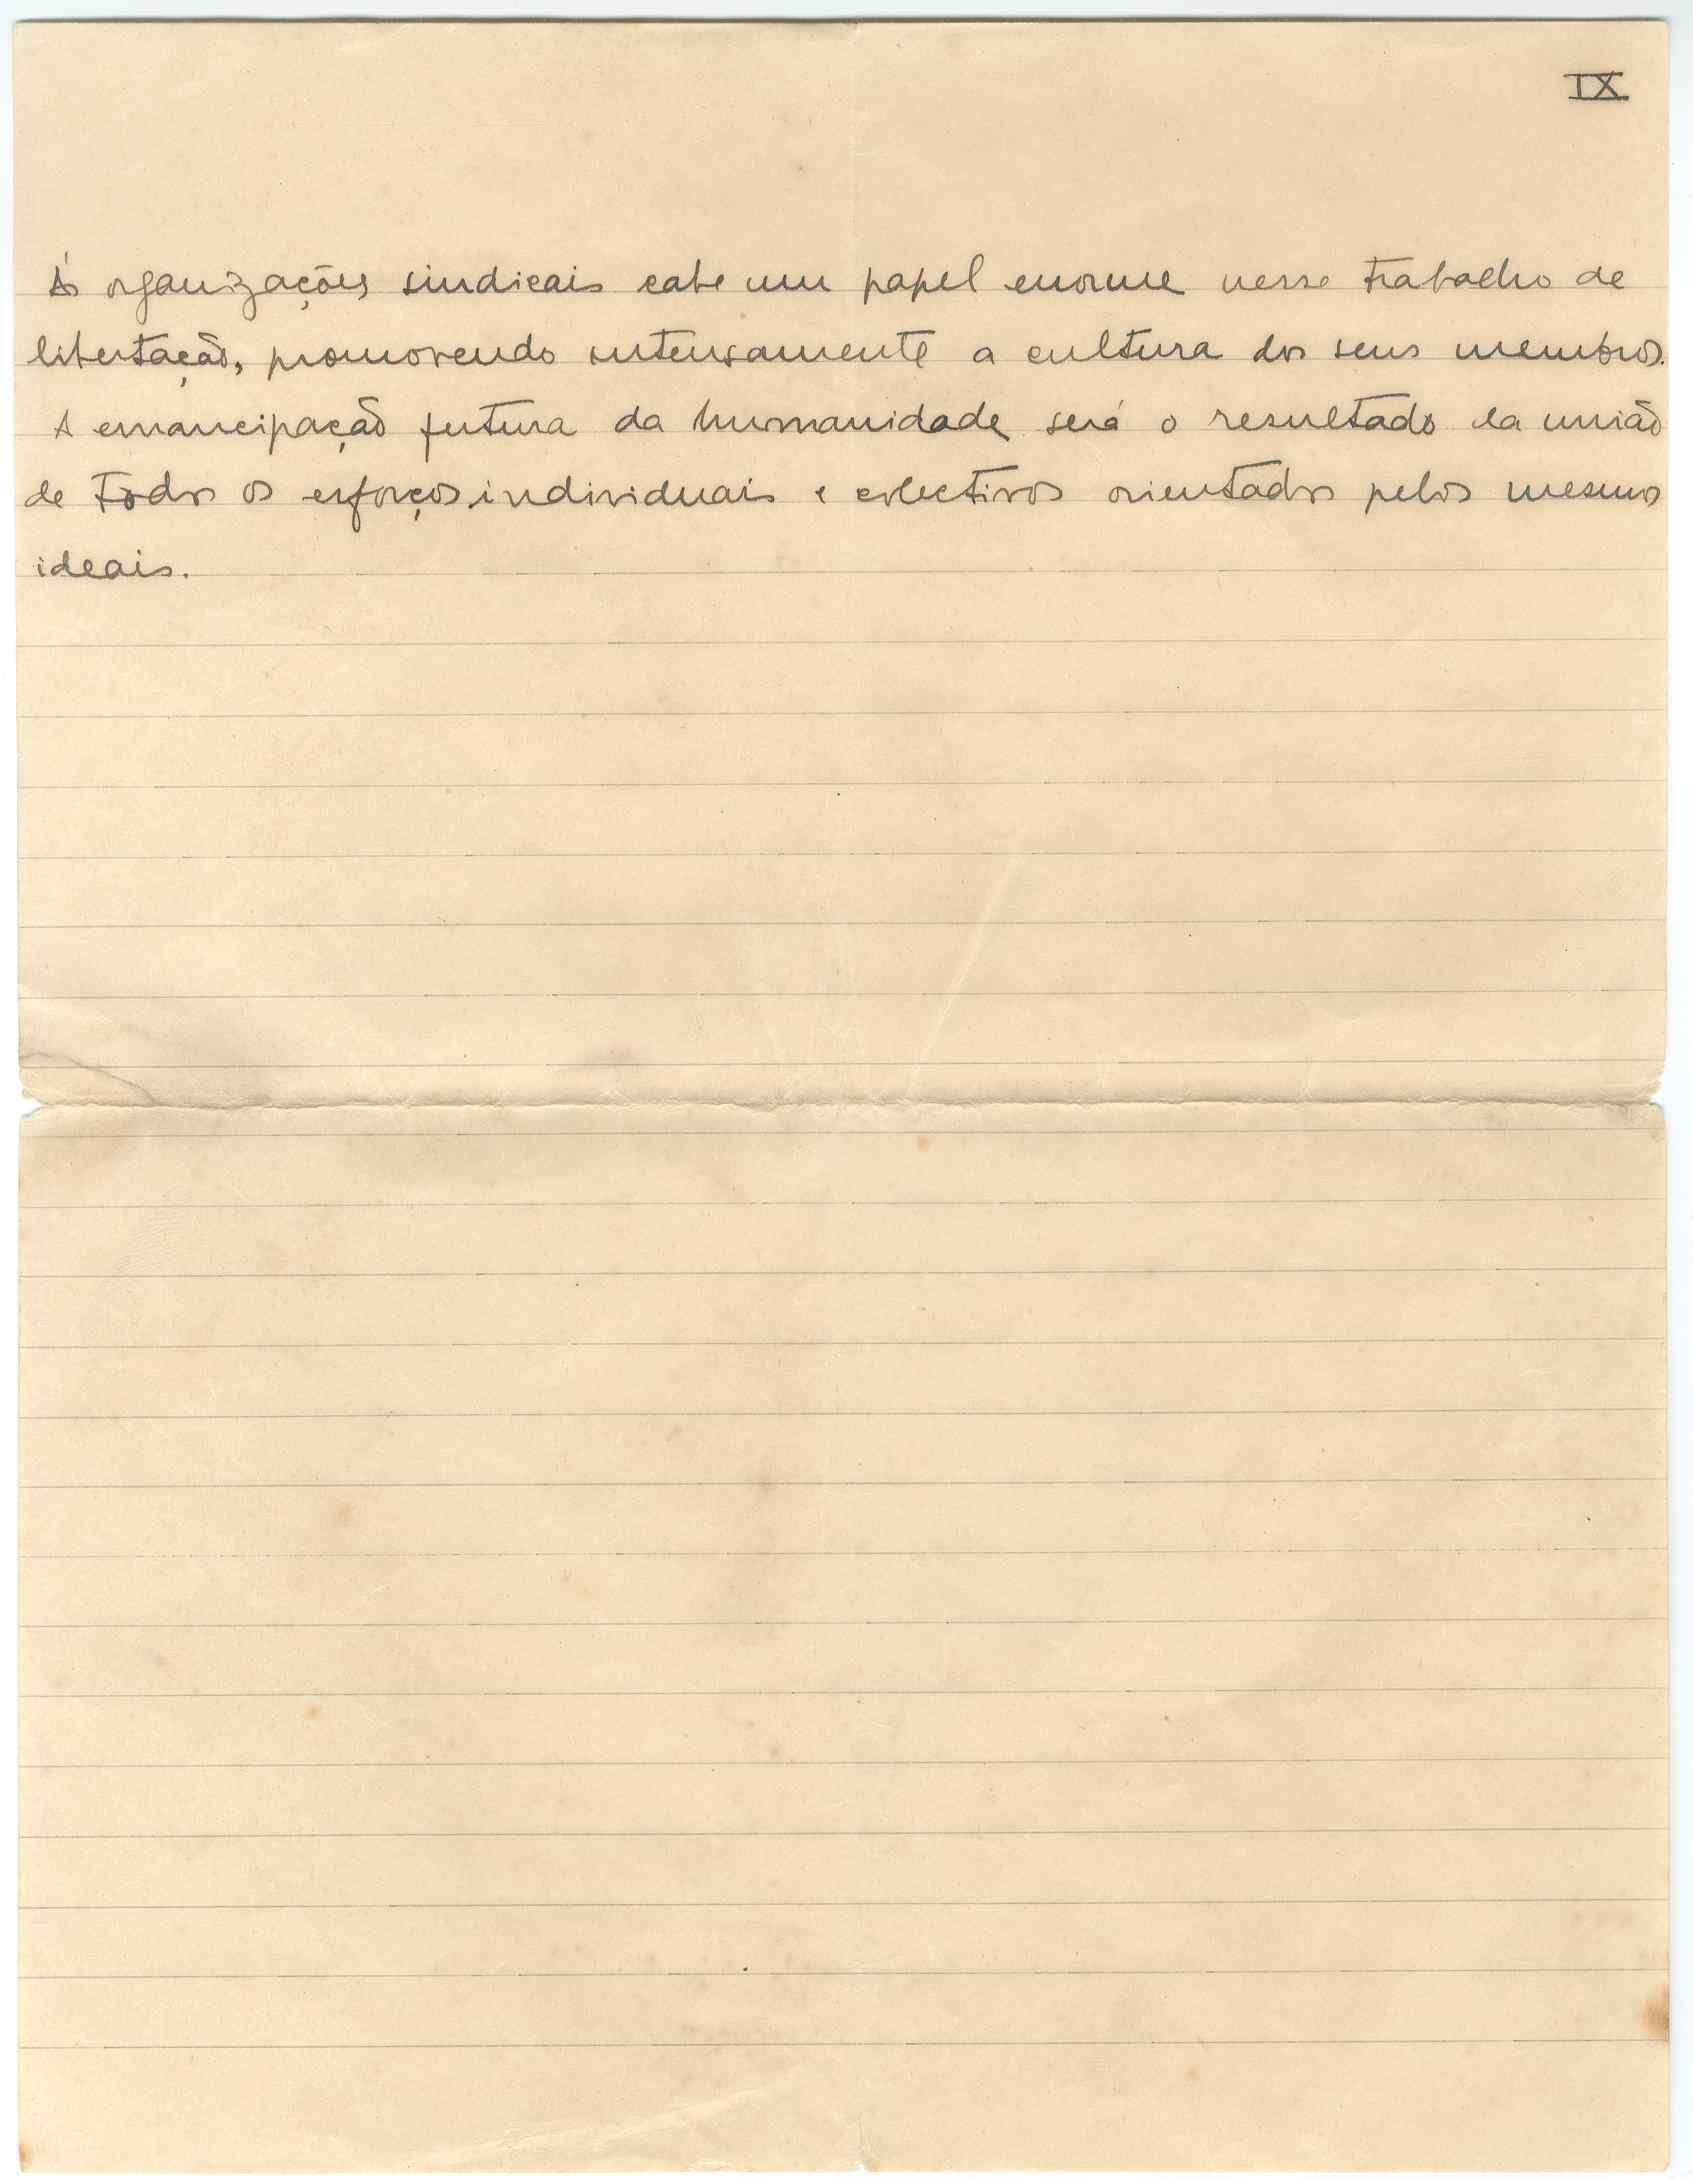 IX
Ás organizações sindicais cabe um papel enorme nesse trabalho de
libertação, promovendo intensamente a cultura dos seus membros.
A emancipação futura da humanidade será o resultado da união
de todos os esforços individuais e colectivos orientados pelos mesmos
ideais.